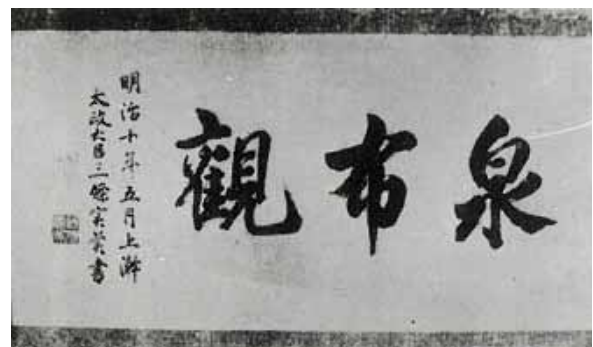 泉布觀
明治十年五月上澣
太政大臣三條実美書